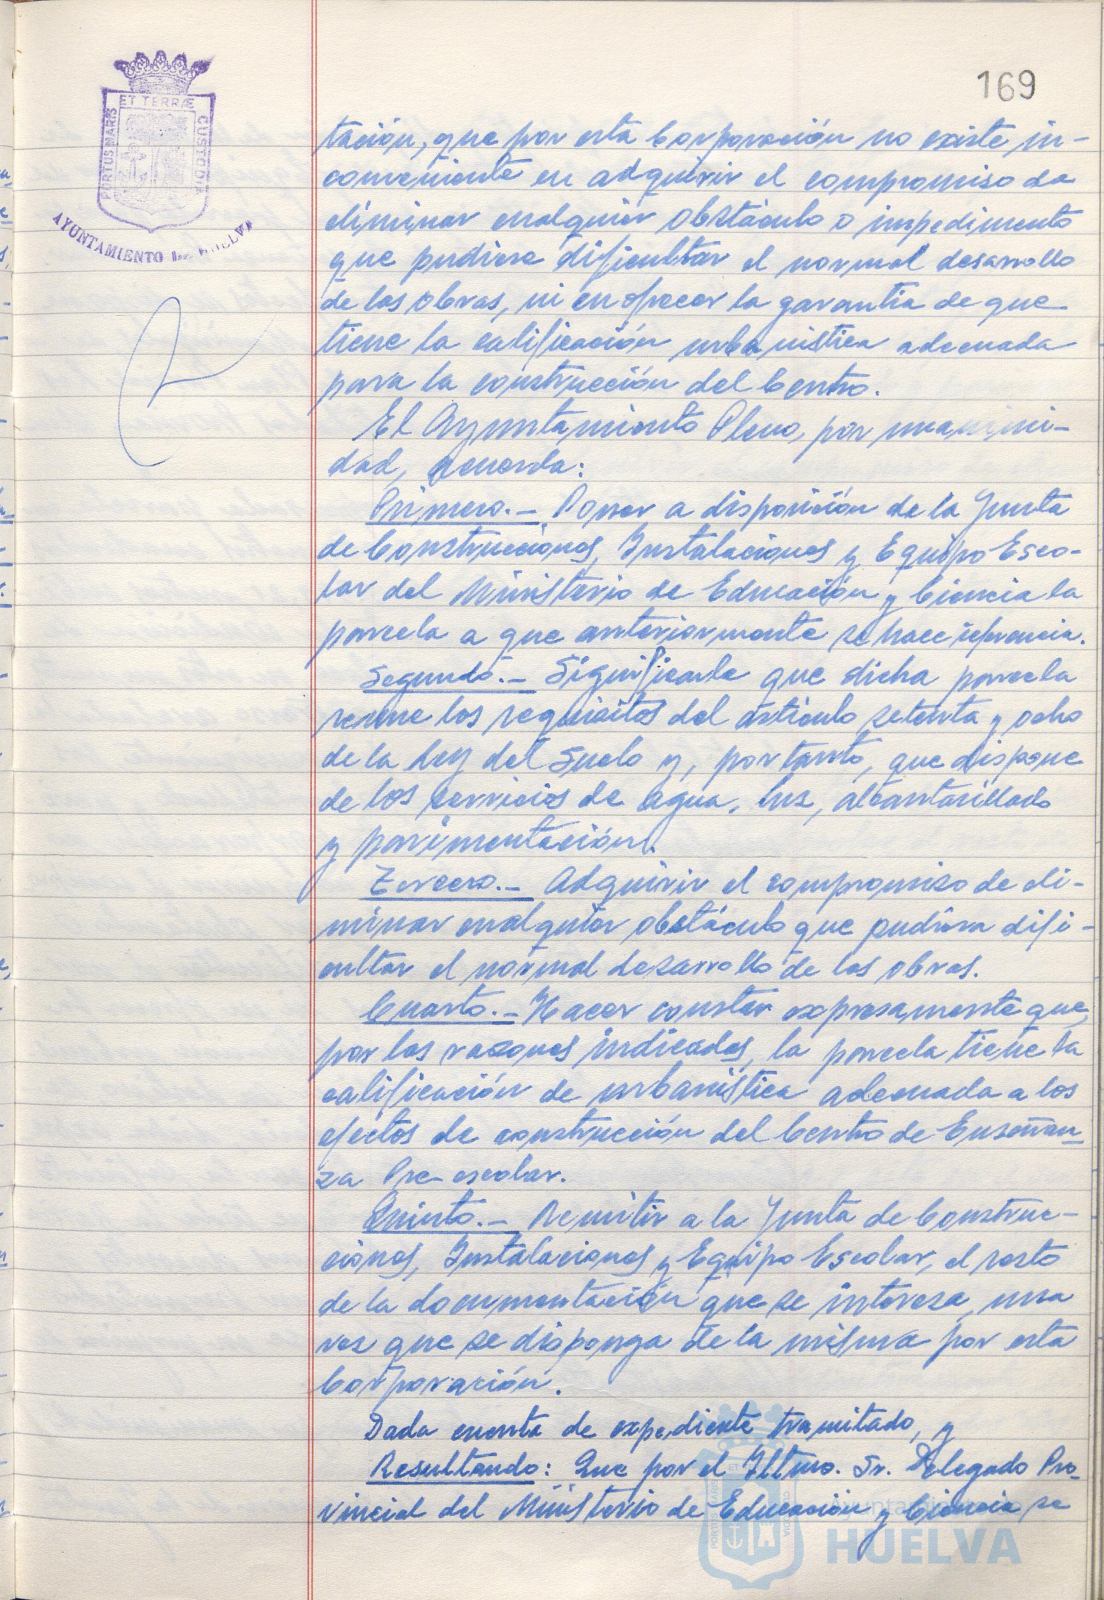 169
ET TERRÆ
PORTUS MARIS
CUSTODIA
AYUNTAMIENTO DE HUELVA
tación, que por esta Corporación no existe in-
conveniente en adquirir el compromiso de
eliminar cualquier obstáculo o impedimento
que pudiera dificultar el normal desarrollo
de las obras, ni en ofrecer la garantía de que
tiene la calificación urbanistica adecuada
para la construcción del Centro.
El Ayuntamiento Pleno, por unanimi-
dad, acuerda:
Primero.- Poner a disposición de la Junta
de Construcciones, Instalaciones y Equipo Esco-
lar del Ministerio de Educación y Ciencia la
parcela a que anteriormente se hace referencia.
Segundo.- Significarle que dicha parcela
reune los requisitos del artículo setenta y ocho
de la Ley del Suelo y, por tanto, que dispone
de los servicios de agua, luz, alcantarillado
y pavimentación.
Tercero.- Adquirir el compromiso de eli-
minar cualquier obstáculo que pudiera difi-
cultar el normal desarrollo de las obras.
Cuarto.- Hacer constar expresamente que,
por las razones indicadas, la parcela tiene la
calificación de urbanística adecuada a los
efectos de construcción del Centro de Enseñan-
za Pre-escolar.
Quinto.- Remitir a la Junta de Construc-
ciones, Instalaciones y Equipo Escolar, el resto
de la documentación que se interesa, una
vez que se disponga de la misma por esta
Corporación.
Dada cuenta de expediente tramitado, y
Resultando: Que por el Iltmo. Sr. Delegado Pro-
vincial del Ministerio de Educación y Ciencia se
Ayuntamiento
HUELVA